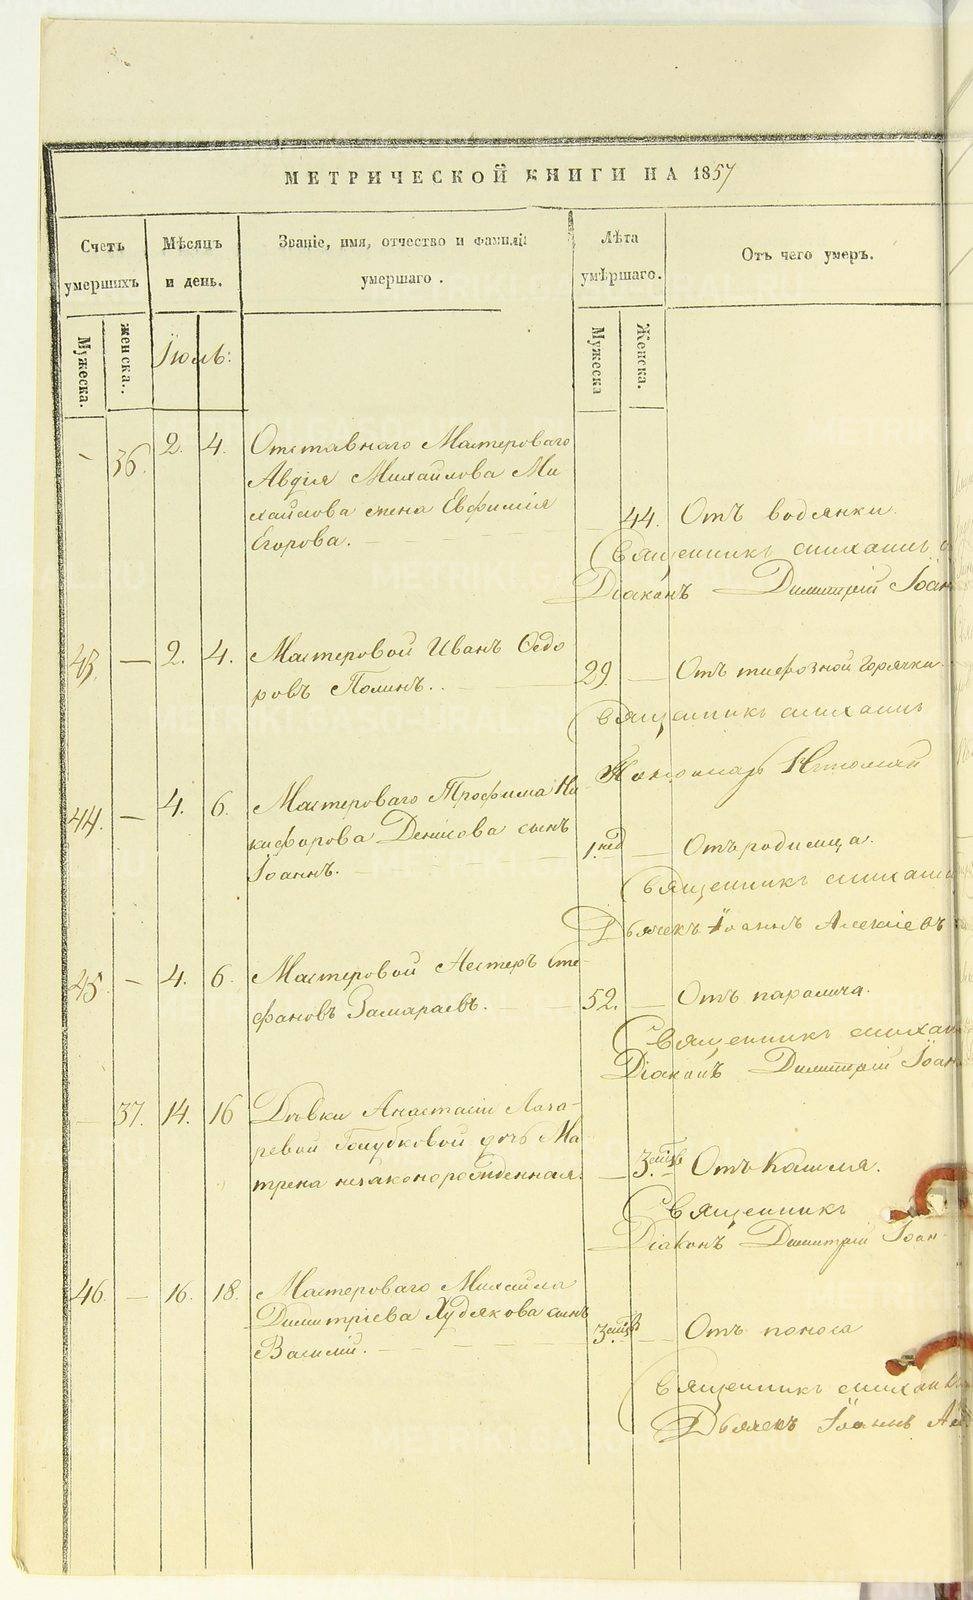 МЕТРИЧЕСКОЙ КНИГИ НА 1857
Счетъ умершихъ
Мѣсяцъ и день.
Званіе, имя, отчество и фамилія умершаго.
Лѣта умѣршаго.
Отъ чего умеръ.
Мужеска.
женска.
Мужеска
Женска.
Іюль:
— 36. 2. 4. Отставнаго Мастероваго
Авдія Михайлова Ми
хайлова жена Евфимія
Егорова. 44. Отъ водянки.
Священникъ Михаилъ
Діаконъ Димитрій Іоан
43. — 2. 4. Мастеровой Иванъ Ѳедо
ровъ Полинъ. 29. — Отъ тифозной горячки.
Священникъ Михаилъ
Пономарь
44. — 4. 6. Мастероваго Трофима Ни
кифорова Денисова сынъ
Іоаннъ. 1. нед — Отъ родимца.
Священникъ Михаилъ
Дьячекъ Іоаннъ Алексіевъ
45. — 4. 6. Мастеровой Нестеръ Сте
фановъ Замараевъ. 52. — Отъ паралича.
Священникъ Михаи
Діаконъ Димитрій Іоан
— 37. 14. 16 Дѣвки Анастасіи Лаза-
ревой Голубковой дочь Ма
трена незаконорожденная. — 3. Отъ кашля.
Священникъ
Діаконъ Димитрій Іоан
46. — 16. 18. Мастероваго Михаила
Димитріева Худякова сынъ
Василій. 3. — Отъ поноса
Священникъ Михаи
Дьячекъ Іоаннъ Ал